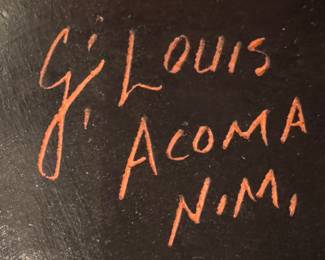 G. Louis
Acoma
N.M.